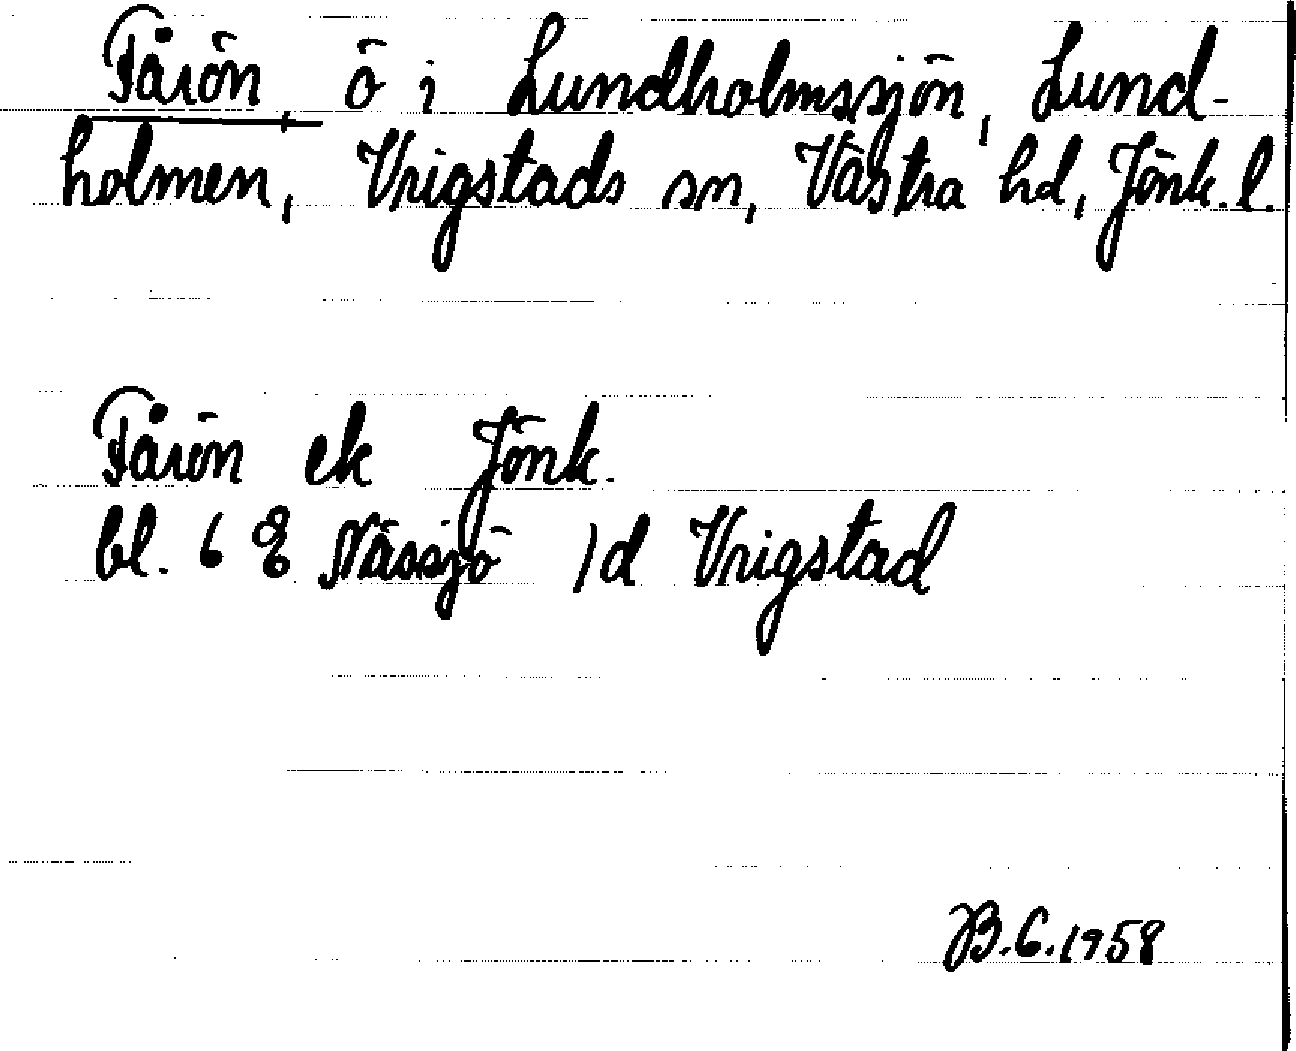 Fårön, ö i Lundholmssjön, Lund-
holmen, Vrigstads sn, Västra hd, Jönk. l.
Fårön ek Jönk.
bl. 6 E Nässjö 1d Vrigstad
B.G.1958